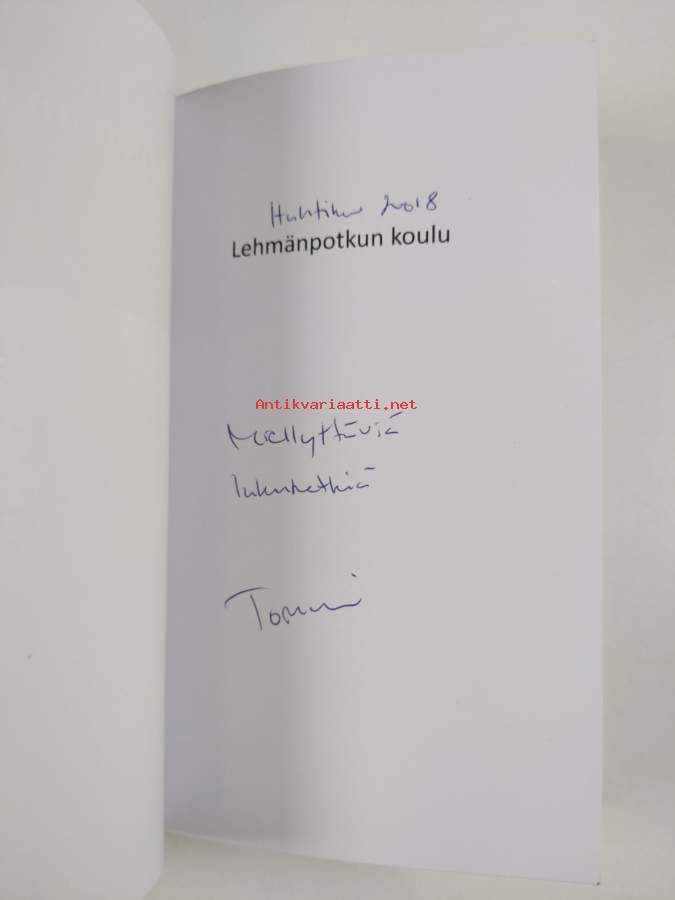 Huhtiku 2018
Lehmänpotkun koulu
Antikvariaatti.net
Miellyttäviä
lukuhetkiä
Tommi